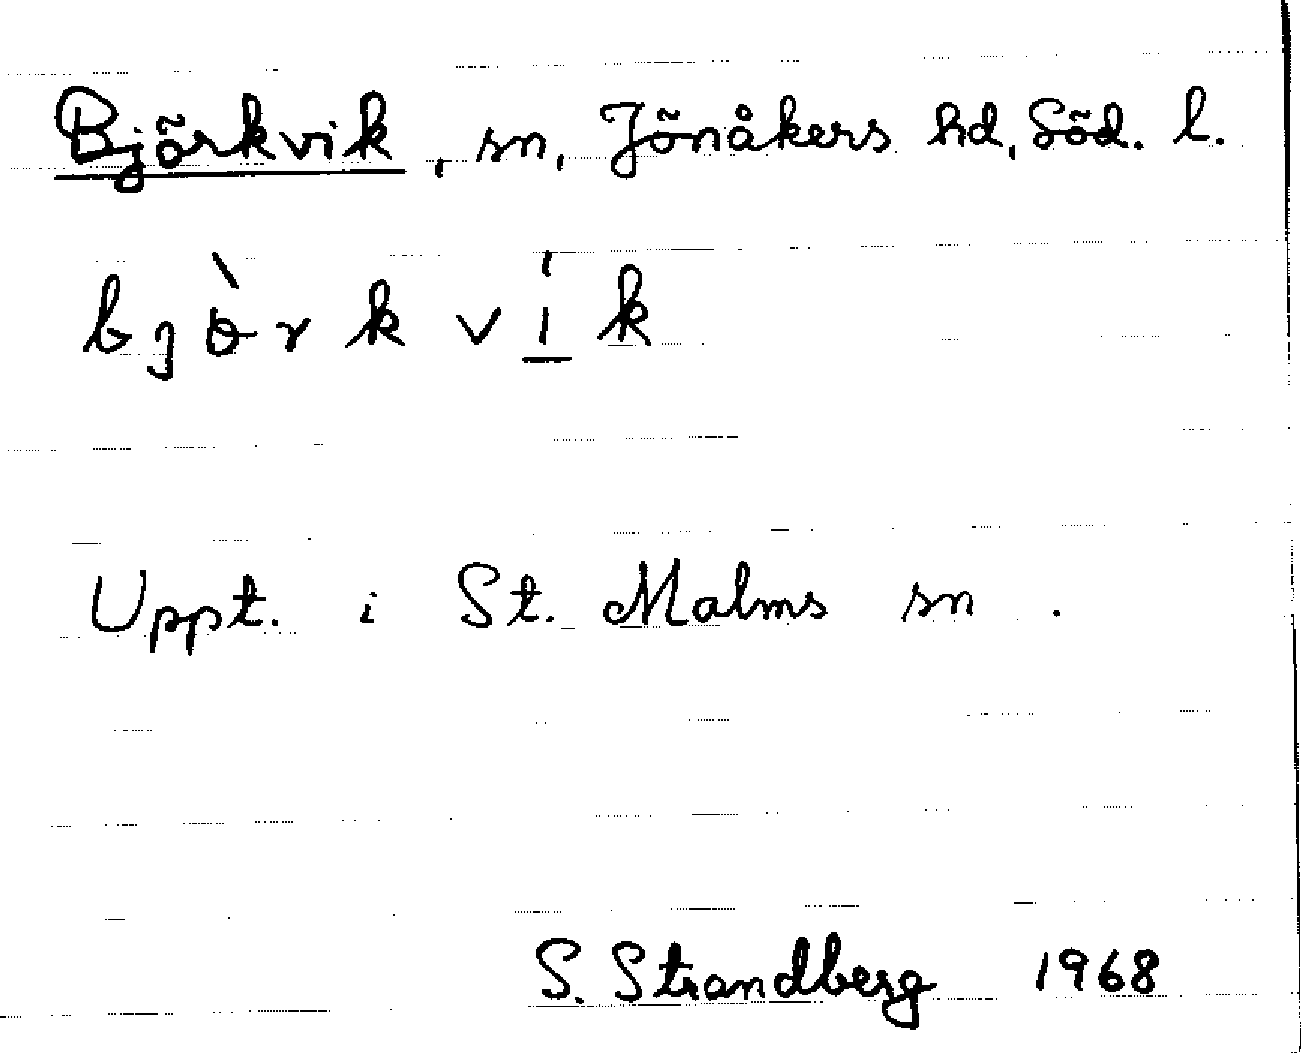 Björkvik, sn, Jönåkers hd, Söd. l.
bjɵ̀rkví̲k
Uppt. i St. Malms sn.
S. Strandberg 1968